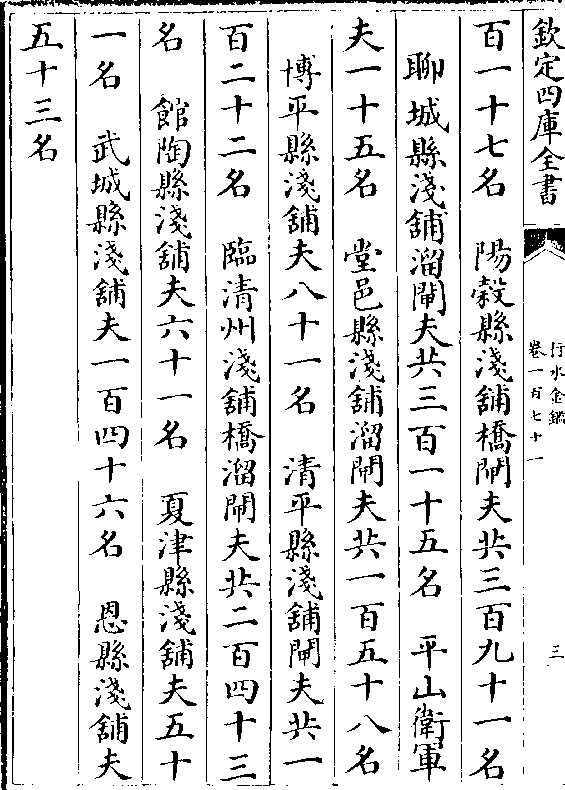 欽定四庫全書
行水金鑑
卷一百七十一
三
百一十七名　陽穀縣淺舖橋閘夫共三百九十一名
聊城縣淺舖溜閘夫共三百一十五名　平山衛軍
夫一十五名　堂邑縣淺舖溜閘夫共一百五十八名
博平縣淺舖夫八十一名　清平縣淺舖閘夫共一
百二十二名　臨清州淺舖橋溜閘夫共二百四十三
名　館陶縣淺舖夫六十一名　夏津縣淺舖夫五十
一名　武城縣淺舖夫一百四十六名　恩縣淺舖夫
五十三名